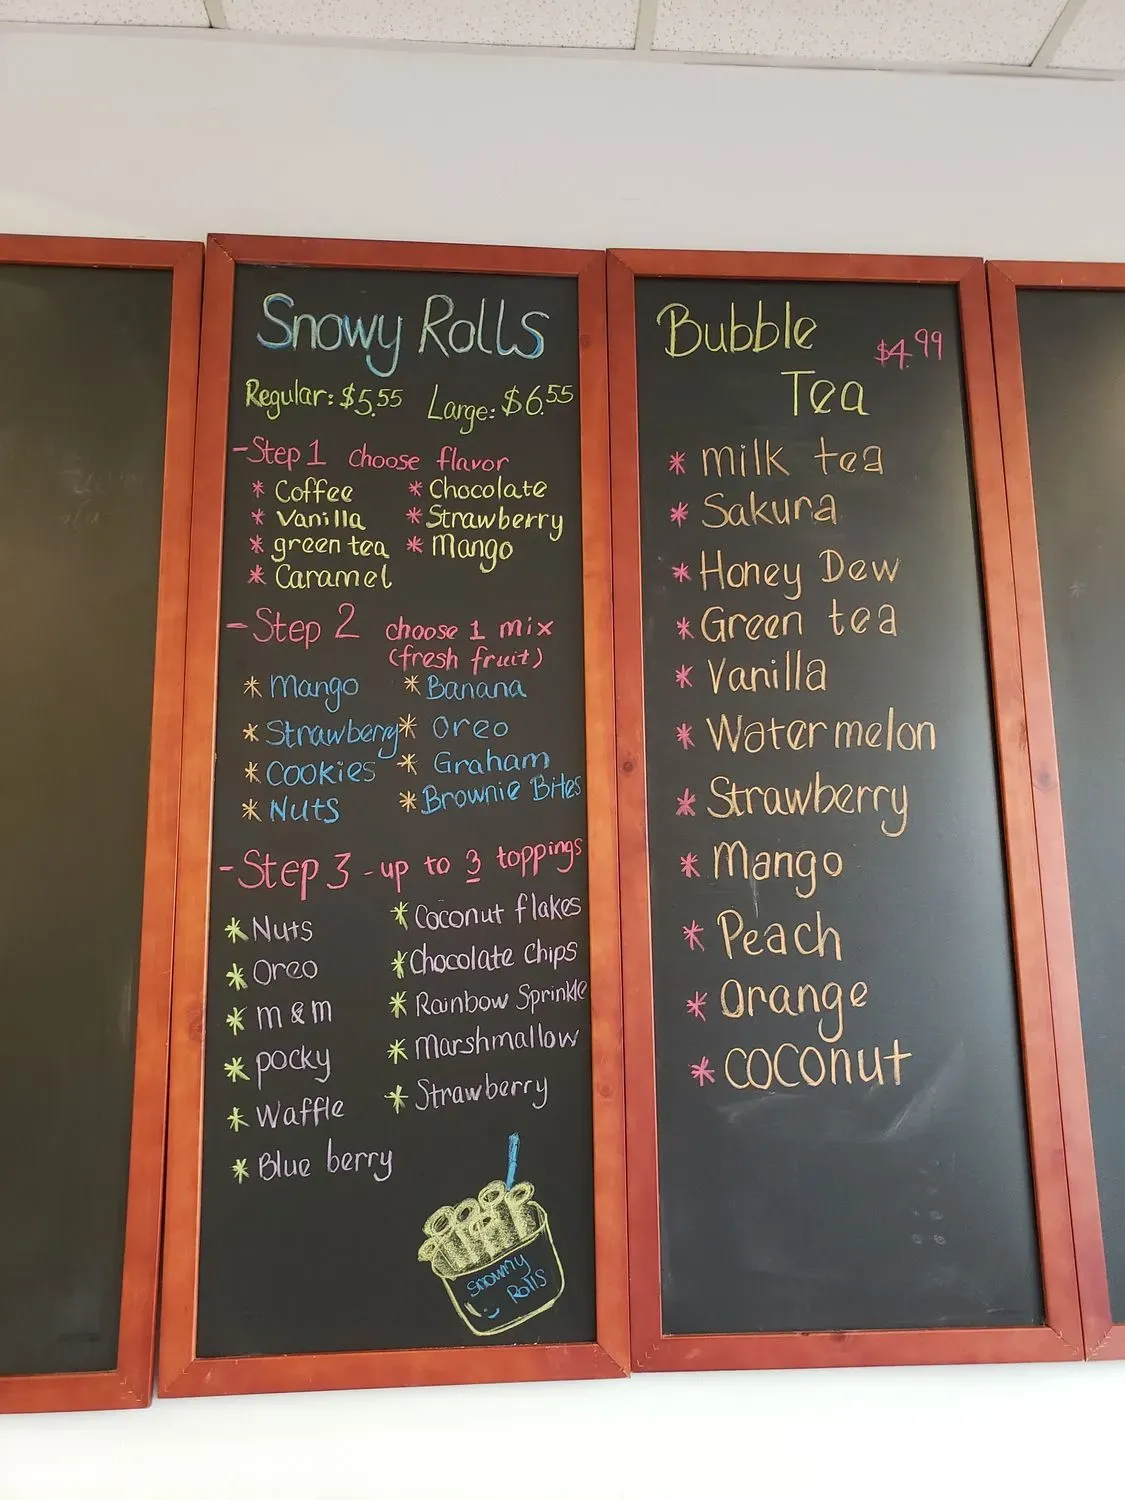 Snowy Rolls
Regular: $5.55 Large: $6.55
-Step 1 choose flavor
* Coffee * Chocolate
* Vanilla * Strawberry
* green tea * Mango
* Caramel
-Step 2 choose 1 mix
(fresh fruit)
* Mango * Banana
* Strawberry * Oreo
* Cookies * Graham
* Nuts * Brownie Bites
-Step 3 - up to 3 toppings
* Nuts * Coconut flakes
* Oreo * Chocolate Chips
* m & m * Rainbow Sprinkle
* pocky * Marshmallow
* Waffle * Strawberry
* Blue berry
Snowy
Rolls
Bubble
$4.99
Tea
* milk tea
* Sakura
* Honey Dew
* Green tea
* Vanilla
* Watermelon
* Strawberry
* Mango
* Peach
* Orange
* coconut